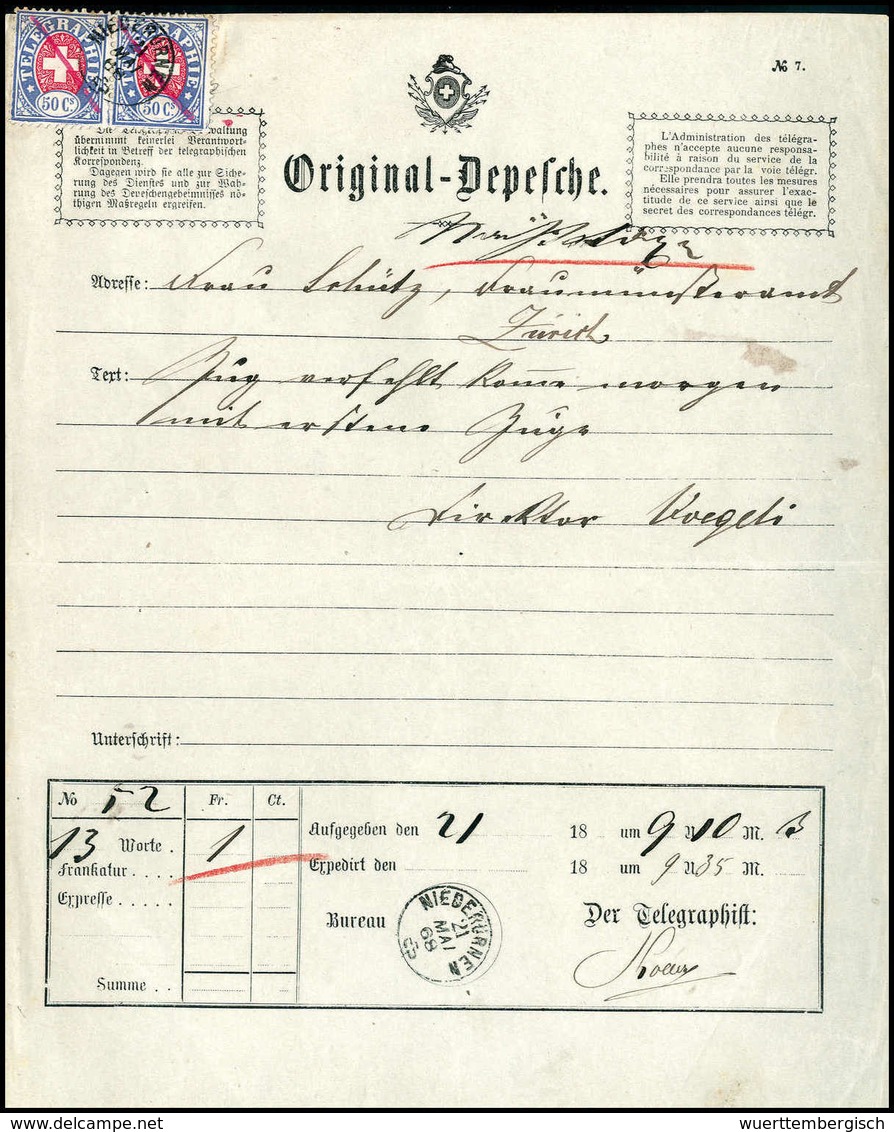 TELEGRAPHIE TELEGRAPHIE
50 Cs. 50 Cs.
NIEDERURNEN
№ 7.
übernimmt keinerlei Verantwort-
lichkeit in Betreff der telegraphischen
Korrespondenz.
Dagegen wird sie alle zur Siche-
rung des Dienstes und zur Wah-
rung des Depeschengeheimnisses nö-
thigen Maßregeln ergreifen.
Original-Depesche.
L'Administration des télégra-
phes n'accepte aucune responsa-
bilité à raison du service de la
correspondance par la voie télégr.
Elle prendra toutes les mesures
nécessaires pour assurer l'exac-
titude de ce service ainsi que le
secret des correspondances télégr.
Adresse: Frau Schütz, Fraumünsteramt
Zürich
Text: Zug verfehlt Kome morgen
mit erstem Zuge
Direktor Voegeli
Unterschrift:
No 52 Fr. Ct.
13 Worte . 1
Frankatur . . . .
Expresse . . . . .
Summe . .
Aufgegeben den 21 18 um 9 U 10 M.
Expedirt den 18 um 9 U 35 M.
Bureau
NIEDERURNEN
21
MAI
68
Der Telegraphist:
wuerttembergisch